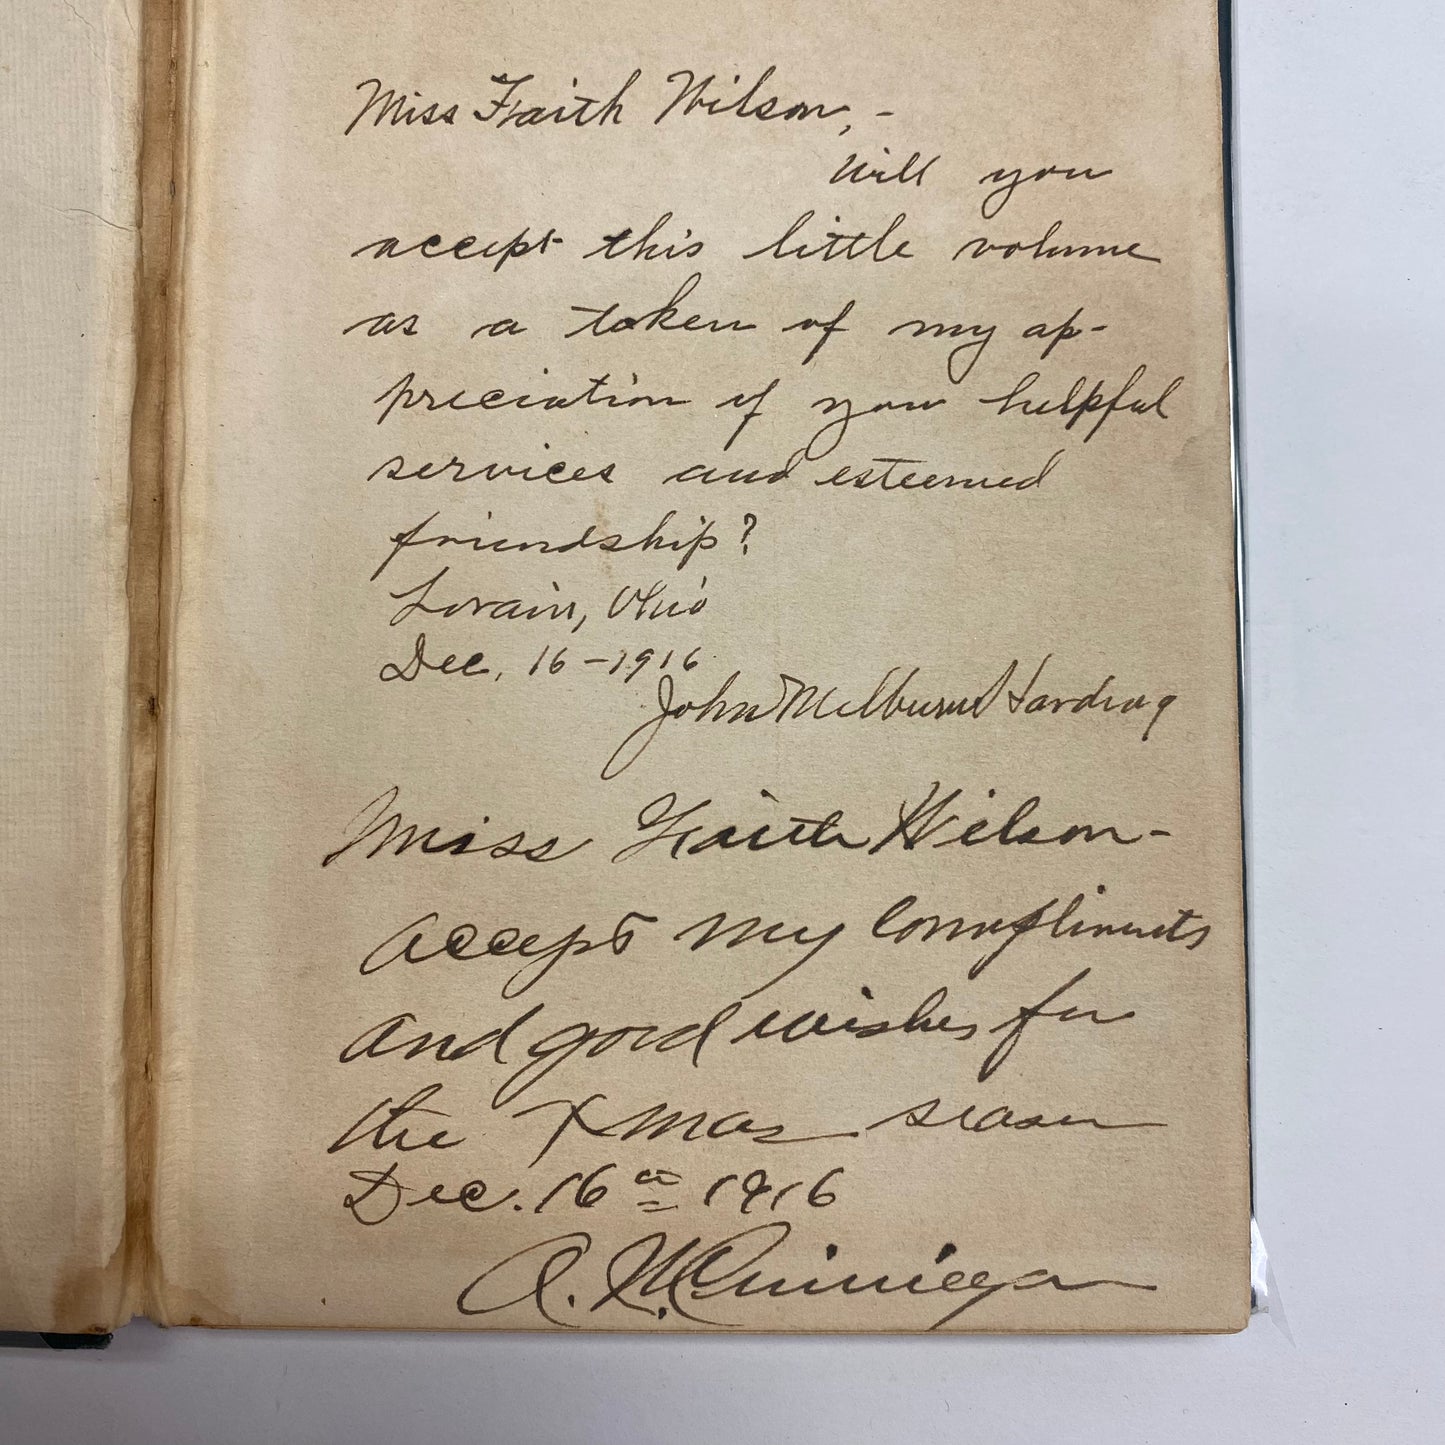 Miss Faith Wilson, -
Will you
accept this little volume
as a token of my ap-
preciation of your helpful
services and esteemed
friendship?
Lorain, Ohio
Dec, 16 - 1916
John Milburn Harding
Miss Faith Wilson -
Accept my Compliments
and good wishes for
the Xmas season
Dec. 16 1916
A.